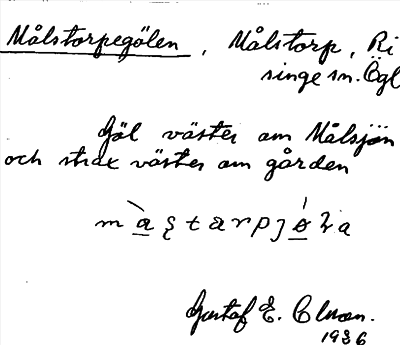 Målstorpegölen, Målstorp, Ri
singe sn. Ögl
Göl väster om Målsjön
och strax väster om gården
Gustaf E.
1936